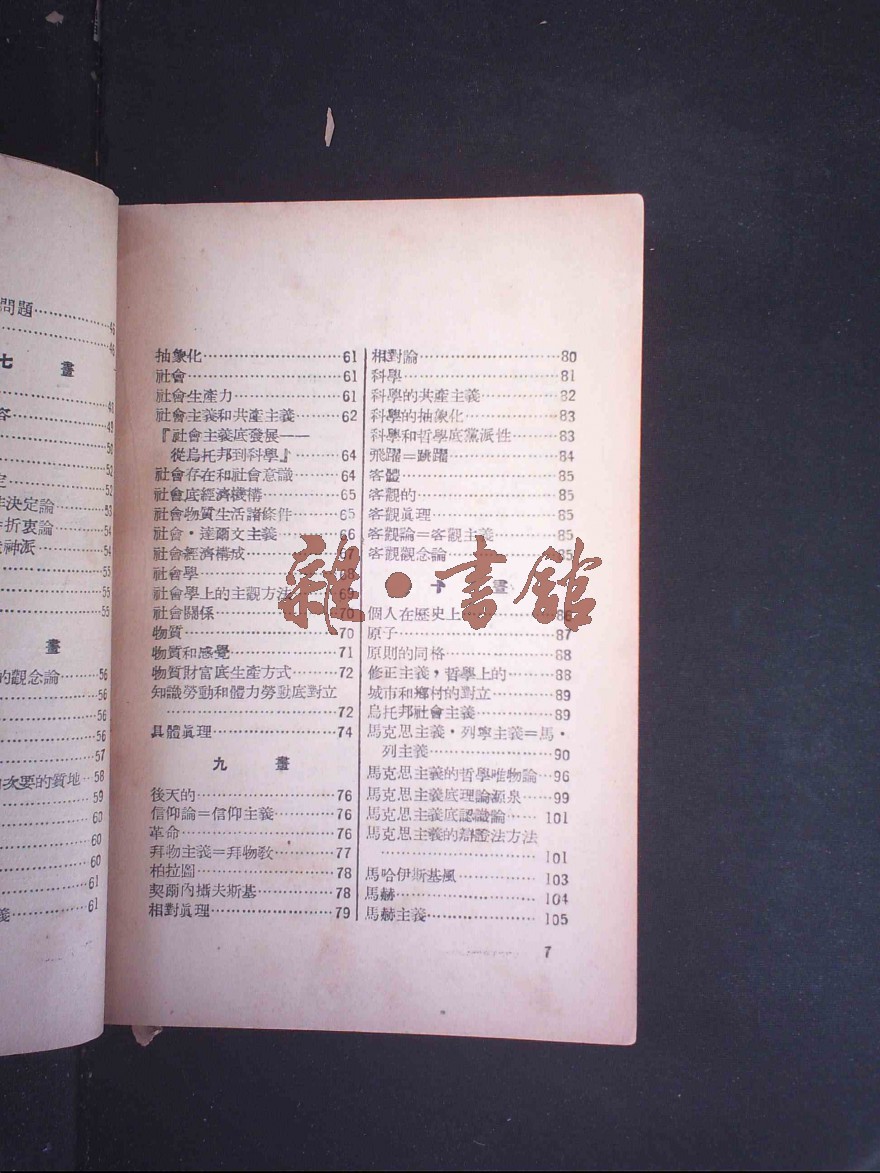 問題……46
……46
七 畫
……48
……49
……50
……52
定……52
決定論……53
折衷論……54
神派……54
……55
……55
……55
畫
的觀念論……56
……56
……56
……56
……57
次要的質地……58
……59
……60
……60
……60
……61
義……61
抽象化……61
社會……61
社會生產力……61
社會主義和共產主義……62
『社會主義底發展——
從烏托邦到科學』……64
社會存在和社會意識……64
社會底經濟機構……65
社會物質生活諸條件……65
社會·達爾文主義……66
社會經濟構成……67
社會學……68
社會學上的主觀方法……69
社會關係……70
物質……70
物質和感覺……71
物質財富底生產方式……72
知識勞動和體力勞動底對立
……72
具體眞理……74
九 畫
後天的……76
信仰論＝信仰主義……76
革命……76
拜物主義＝拜物敎……77
柏拉圖……78
契爾內攝夫斯基……78
相對眞理……79
相對論……80
科學……81
科學的共產主義……82
科學的抽象化……83
科學和哲學底黨派性……83
飛躍＝跳躍……84
客體……85
客觀的……85
客觀眞理……85
客觀論＝客觀主義……85
客觀觀念論……85
十 畫
個人在歷史上……86
原子……87
原則的同格……88
修正主義，哲學上的……88
城市和鄉村的對立……89
烏托邦社會主義……89
馬克思主義·列寧主義＝馬·
列主義……90
馬克思主義的哲學唯物論……96
馬克思主義底理論源泉……99
馬克思主義底認識論……101
馬克思主義的辯證法方法
……101
馬哈伊斯基風……103
馬赫……104
馬赫主義……105
7
雜·書館